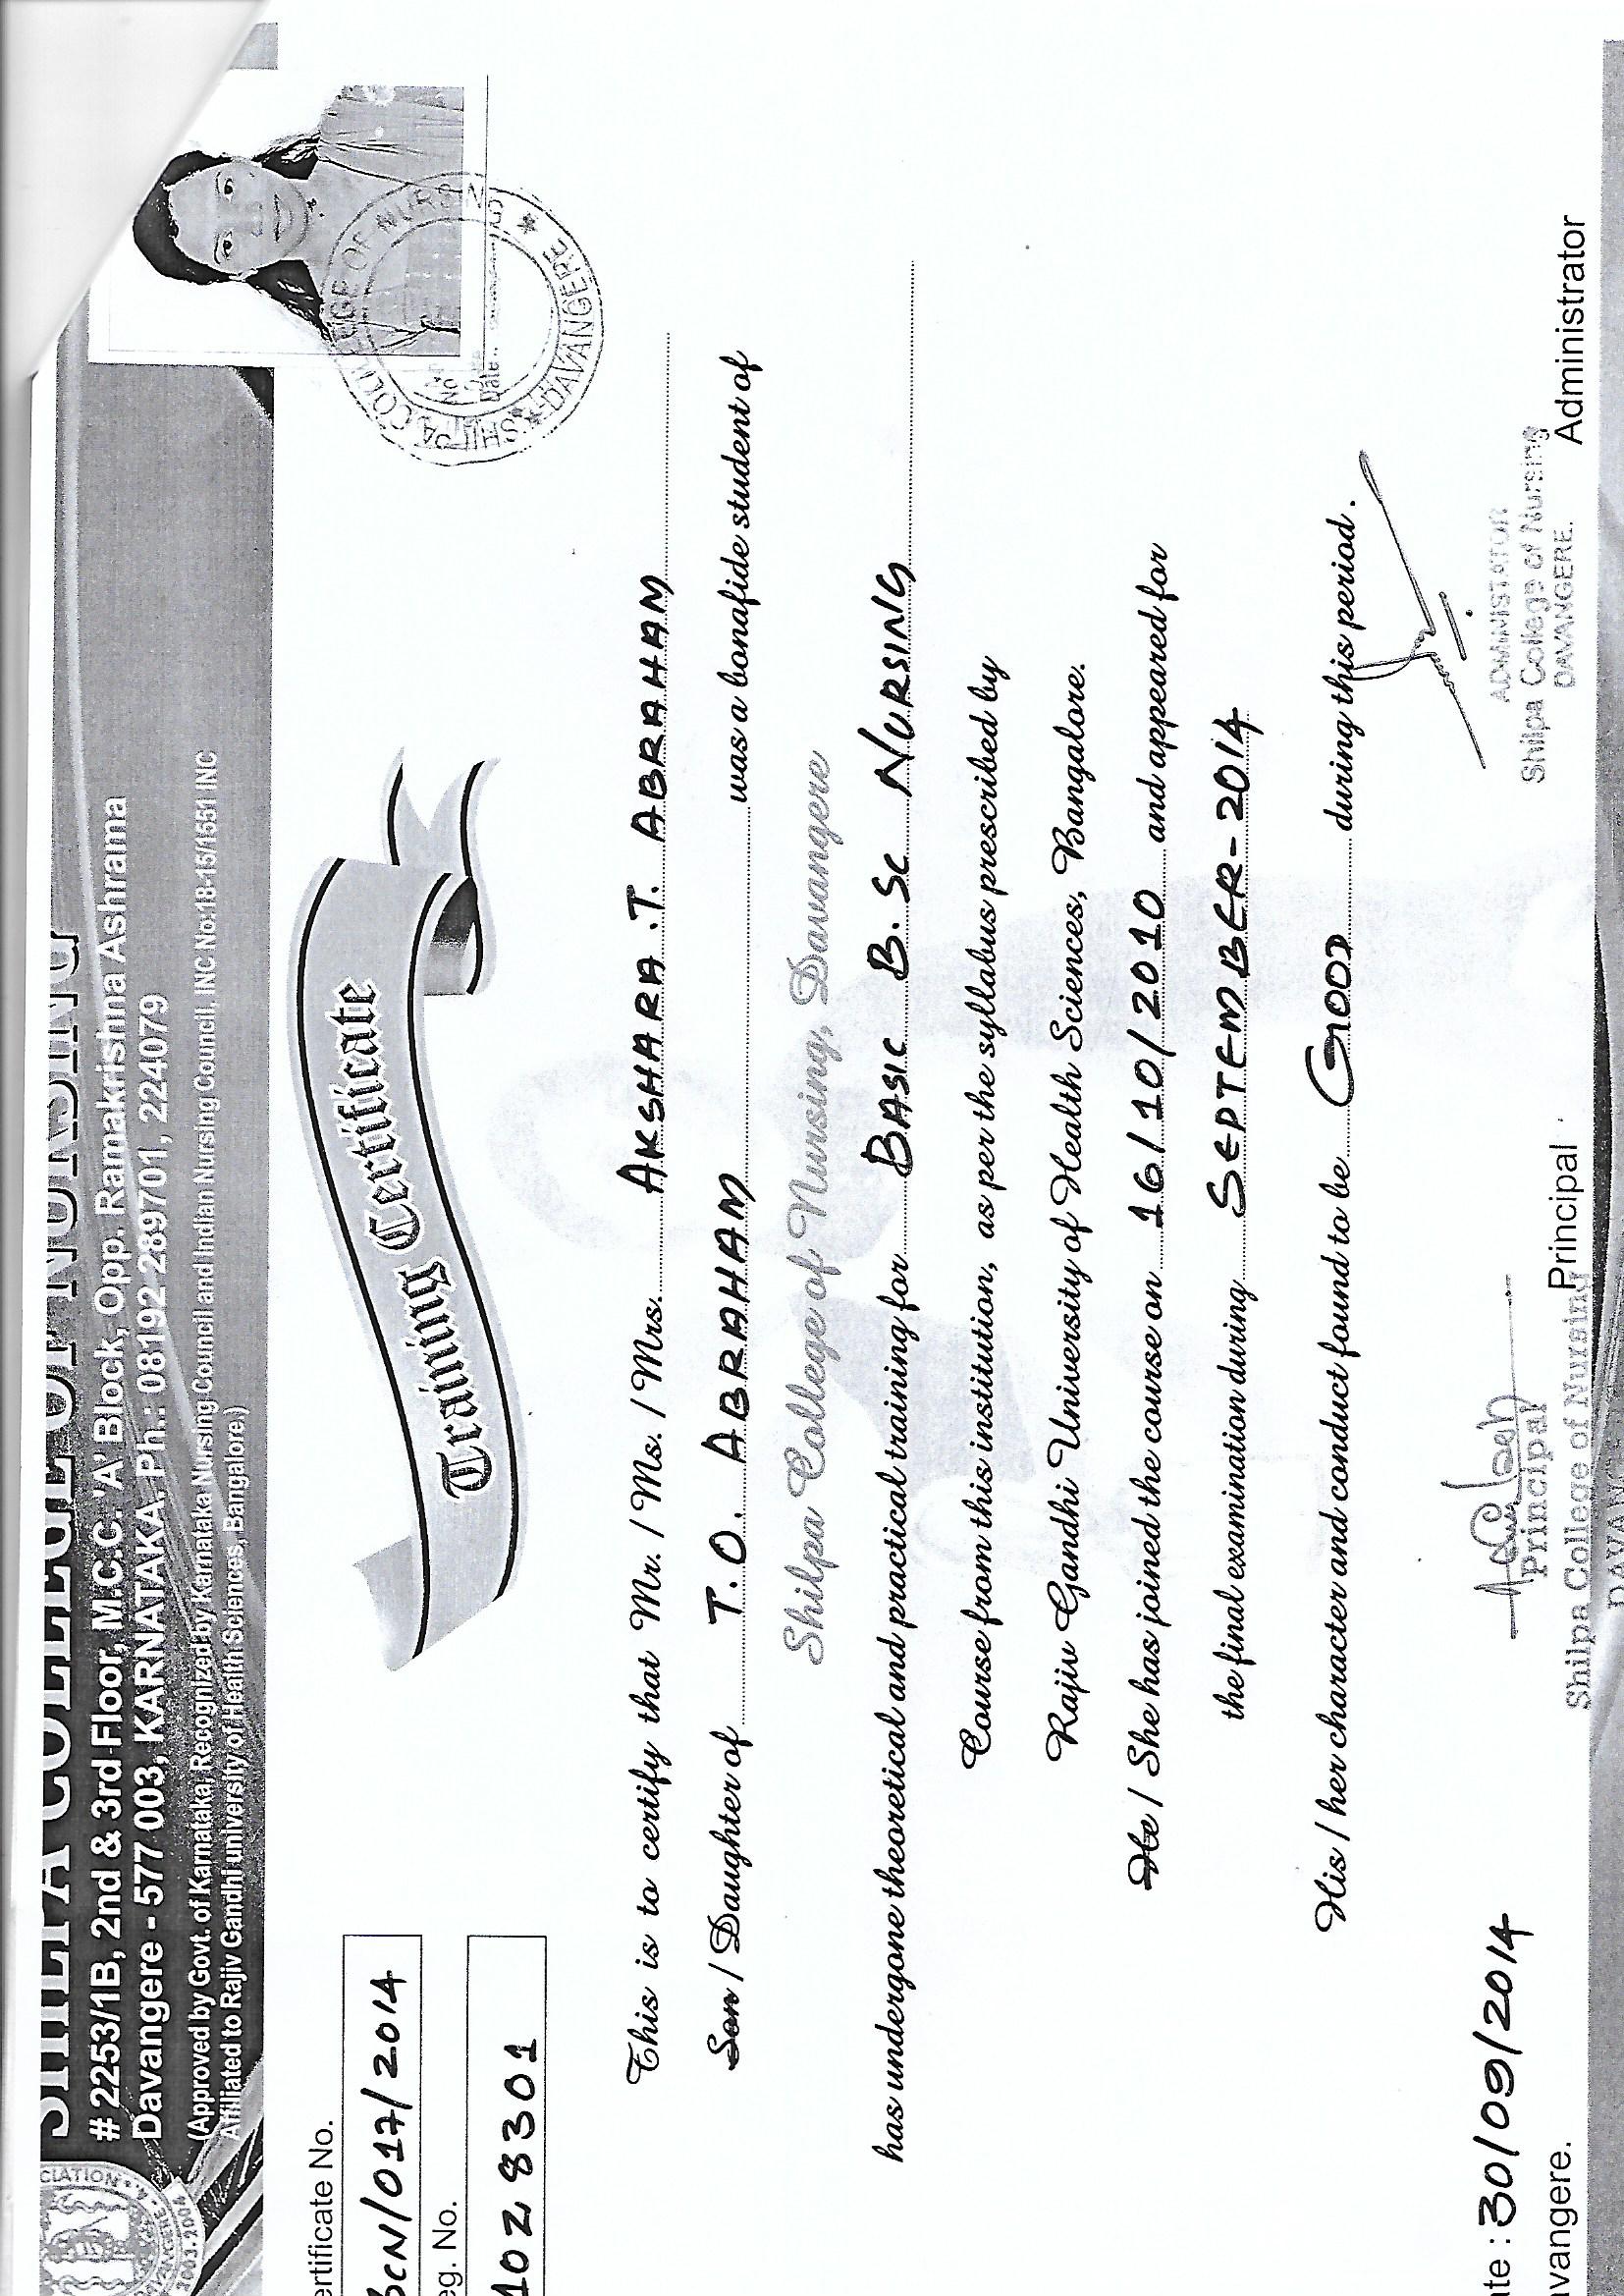 SHILPA COLLEGE OF NURSING
# 2253/1B, 2nd & 3rd Floor, M.C.C. 'A' Block, Opp. Ramakrishna Ashrama
Davangere - 577 003, KARNATAKA. Ph.: 08192 269701, 224079
(Approved by Govt. of Karnataka, Recognized by Karnataka Nursing Council and Indian Nursing Council, INC No:18-15/1651 INC
Affiliated to Rajiv Gandhi university of Health Sciences, Bangalore.)
CIATION
ertificate No.
BCN/017/2014
eg. No.
1028301
Training Certificate
SHILPA COLLEGE OF NURSING
DAVANGERE
This is to certify that Mr. / Ms. / Mrs. AKSHARA .T. ABRAHAM
Son / Daughter of T.O. ABRAHAM was a bonafide student of
Shilpa College of Nursing, Davangere
has undergone theoretical and practical training for BASIC B. Sc NURSING
Course from this institution, as per the syllabus prescribed by
Rajiv Gandhi University of Health Sciences, Bangalore.
He / She has joined the course on 16/10/2010 and appeared for
the final examination during SEPTEMBER-2014
His / her character and conduct found to be GOOD during this period.
ate : 30/09/2014
avangere.
Principal
Shilpa College of Nursing
Principal
ADMINISTATOR
Shilpa College of Nursing
DAVANGERE.
Administrator